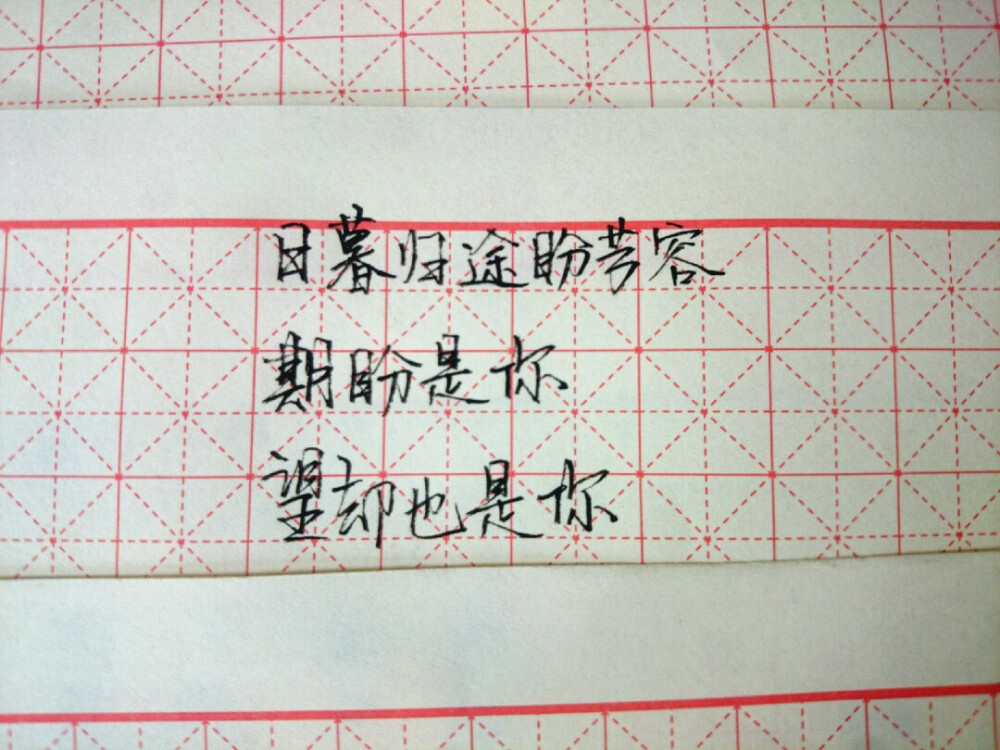 日暮归途盼芳容
期盼是你
望却也是你